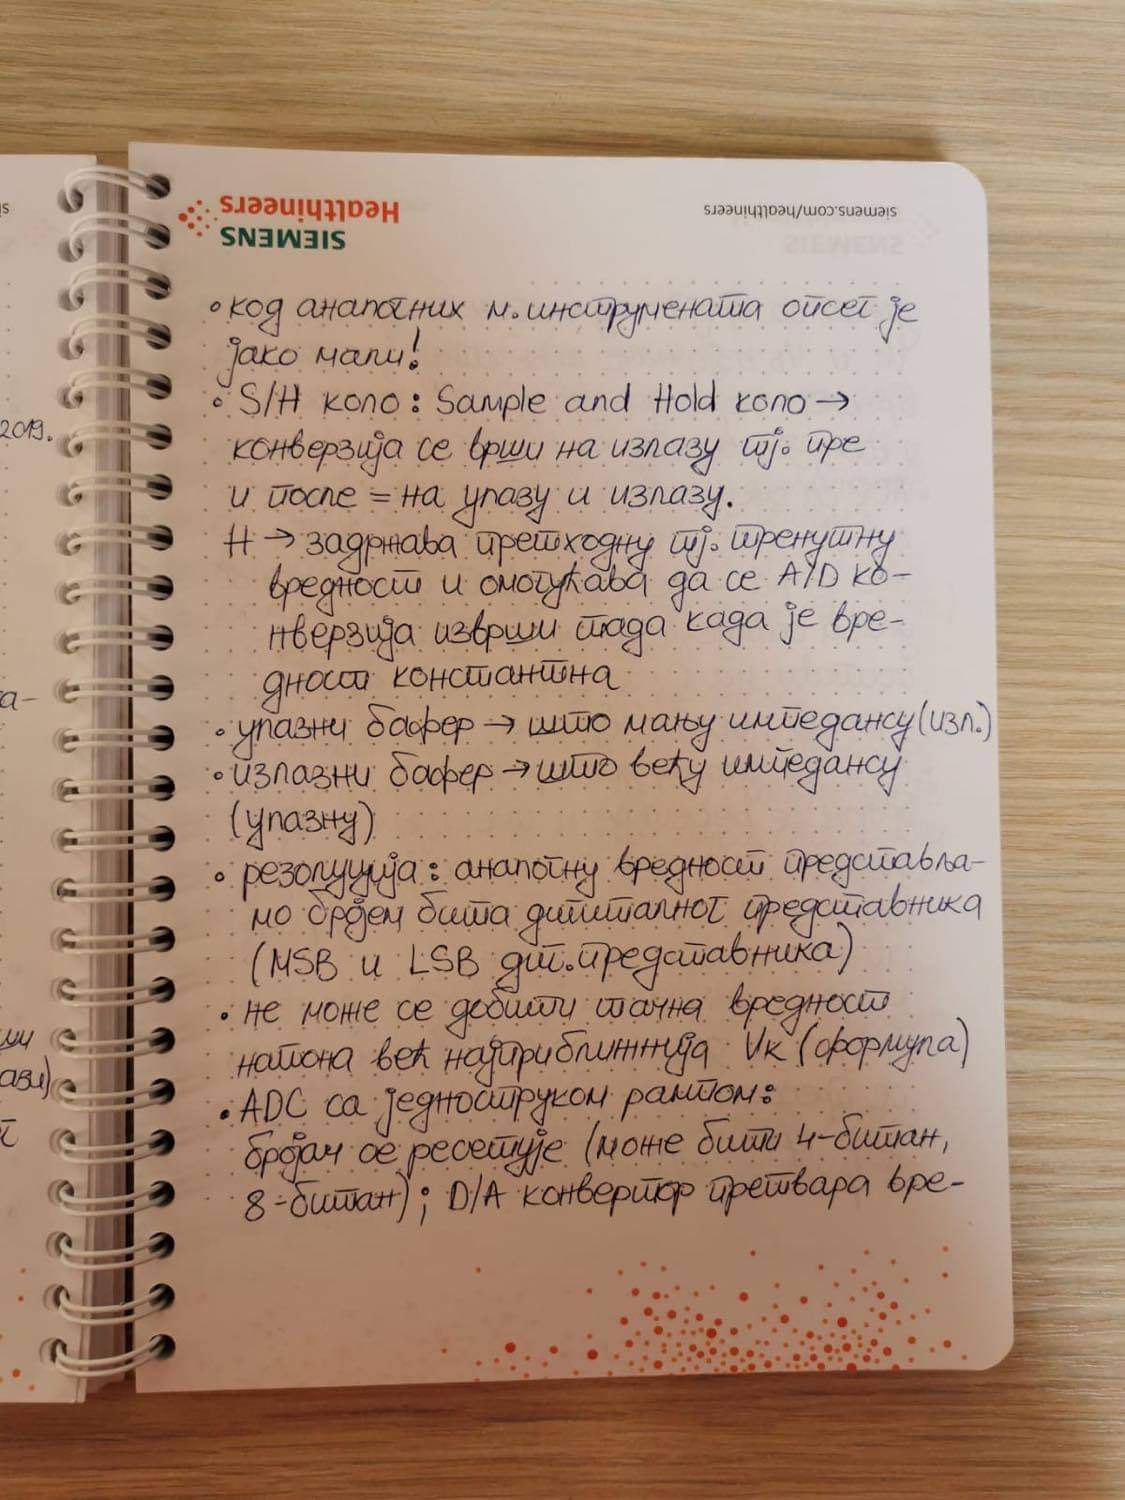 2019.
siemens.com/healthineers
SIEMENS
Healthineers
• код аналогних м. инструмената опсег је
јако мали!
• S/H коло: Sample and Hold коло →
конверзија се врши на излазу тј. пре
и после = на улазу и излазу.
H → задржава претходну тј. тренутну
вредност и омогућава да се A/D ко-
нверзија изврши тада када је вре-
дност константна
• улазни бафер → што мању импедансу (изл.)
• излазни бафер → што већу импедансу
(улазну)
• резолуција: аналогну вредност представља-
мо бројем бита дигиталног представника
(MSB и LSB диг. представника)
• не може се добити тачна вредност
напона већ најприближнија Vк (формула)
• ADC са једноструком рампом:
бројач се ресетује (може бити 4-битан,
8-битан); D/A конвертор претвара вре-